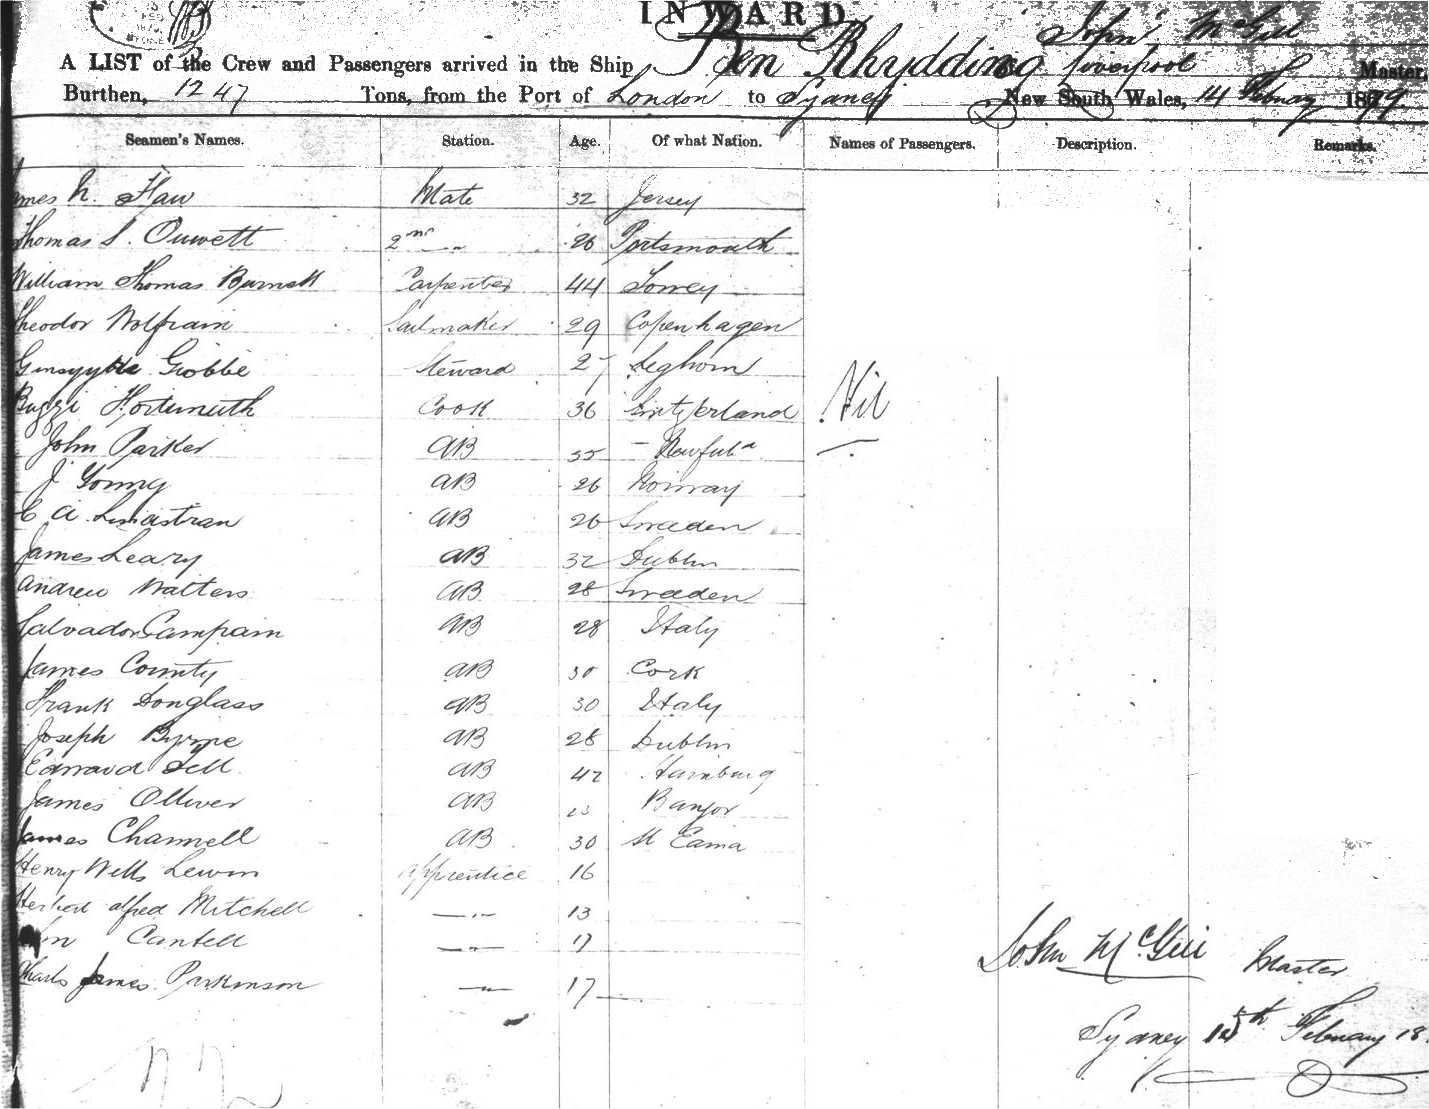 INWARD
John McGill
A LIST of the Crew and Passengers arrived in the Ship Ben Rhydding Liverpool Master,
Burthen, 1247 Tons, from the Port of London to Sydney New South Wales, 14 February 1879.
Seamen's Names. Station. Age. Of what Nation. Names of Passengers. Description. Remarks.
James N. Mate 32 Jersey
Thomas S. 2nd —"— 26 Portsmouth
William Thomas Carpenter 44 Fowey
Theodor Wolfram Sailmaker 29 Copenhagen
Giobbe Steward 27 Leghorn
Buzzi Cook 36 Switzerland Nil
John Parker AB 35 Newfuld
J Young AB 26 Norway
C A AB 26 Sweden
James Leary AB 32 Dublin
Andrew Walters AB 28 Sweden
Salvador Campain AB 28 Italy
James County AB 30 Cork
Frank Donglass AB 30 Italy
Joseph Byrne AB 28 Dublin
Edward AB 42 Hamburg
James Olliver AB 23 Bangor
James Channell AB 30
Henry Wells Lewin Apprentice 16
Herbert Alfred Mitchell —"— 13
Cantell —"— 17
Charls James Parkinson —"— 17
John McGill Master
Sydney 15th February 18